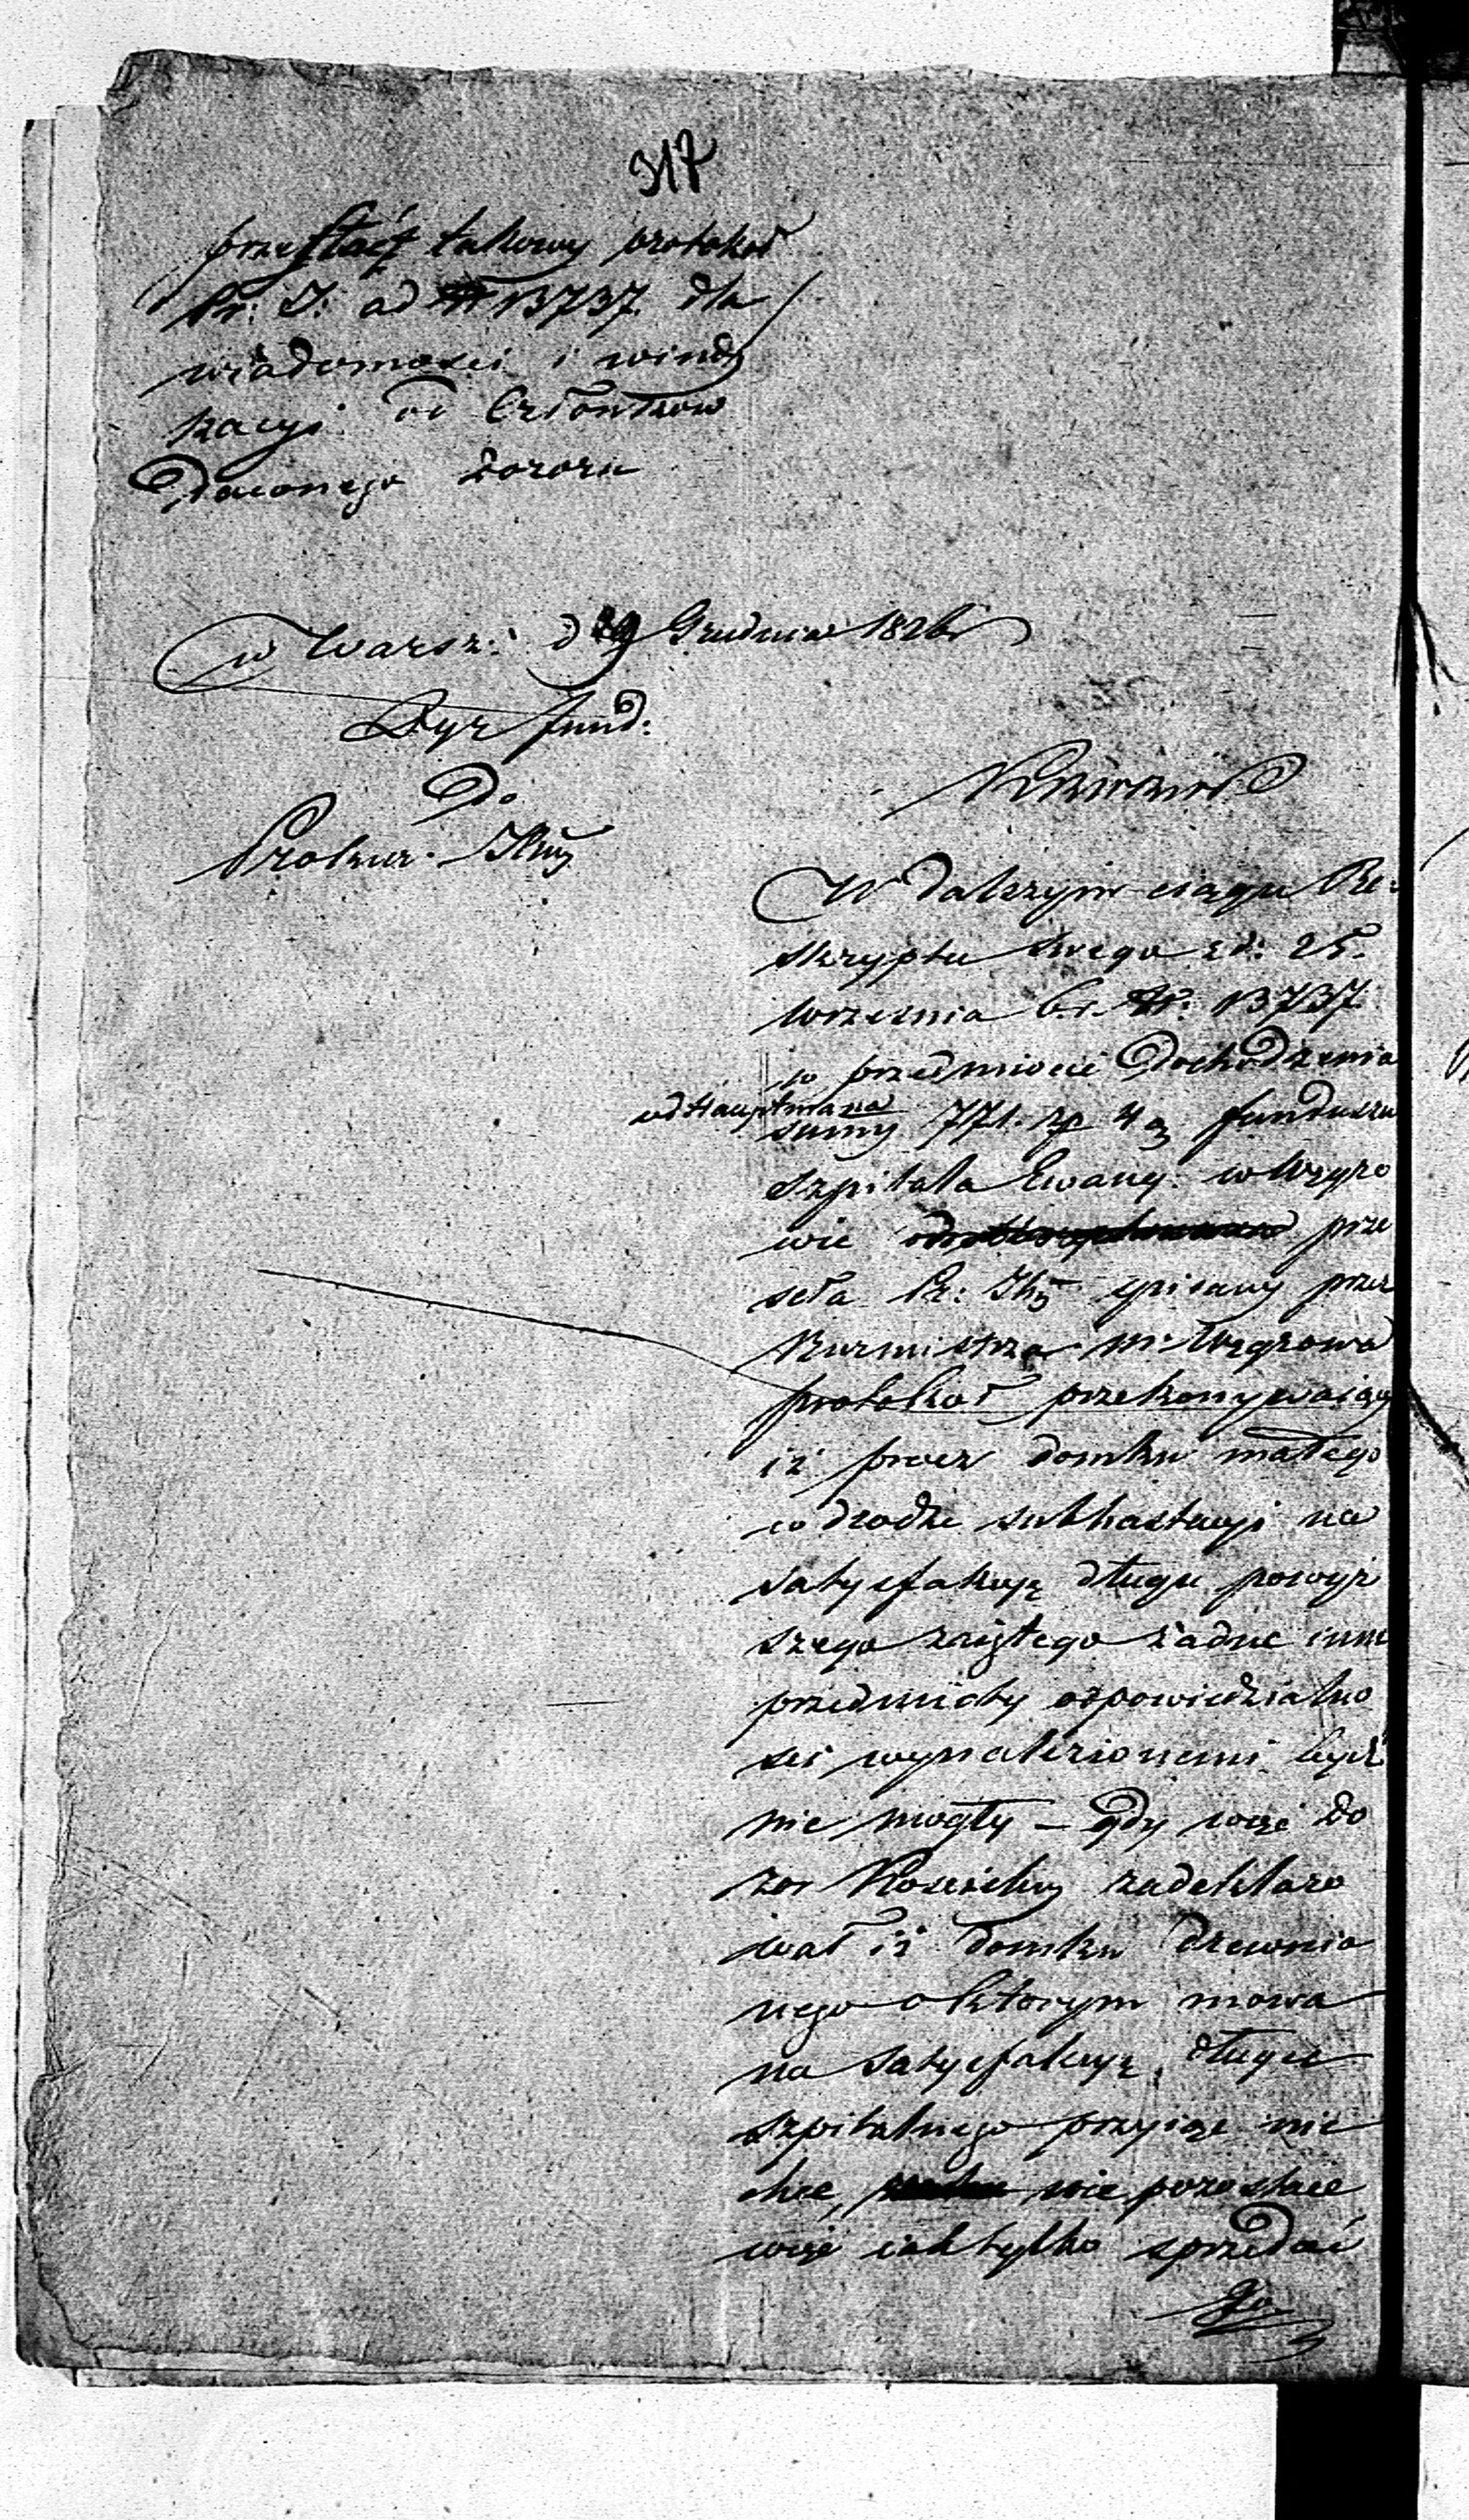 317
przesłać takowy protokół
Pr: J: ad N 13737. dla
wiadomości i windy
kacyi od Członków
Daionego Dozoru
w Warsz: d 29 Grudnia 1826 r
Dyr fund:
Do
Prokur. JKey
W dalszym ciągu Re-
skryptu swego z d: 25.
Września b.r. N: 13737
w przedmiocie Dochodzenia
od Hauptmana
sumy 771. zp 4 g funduszu
szpitala Ewang: w Węgro
wie prze
seła Pr: JKey spisany przez
Burmistrza m: Węgrowa
protokół przekonywaiący
iż procz domku małego
w drodze subhastacyi na
satysfakcyą długu powyż
szego zaiętego żadne inne
przedmioty odpowiedzialno
sci wynalezionemi bydź
nie mogły – gdy więc Do
zor Koscielny zadeklaro
wał iż domku drewnia
nego o ktorym mowa
na satysfakcyą długu
szpitalnego przyiąć nie
chce, nie pozostaie
więc iak tylko sprzedać
go